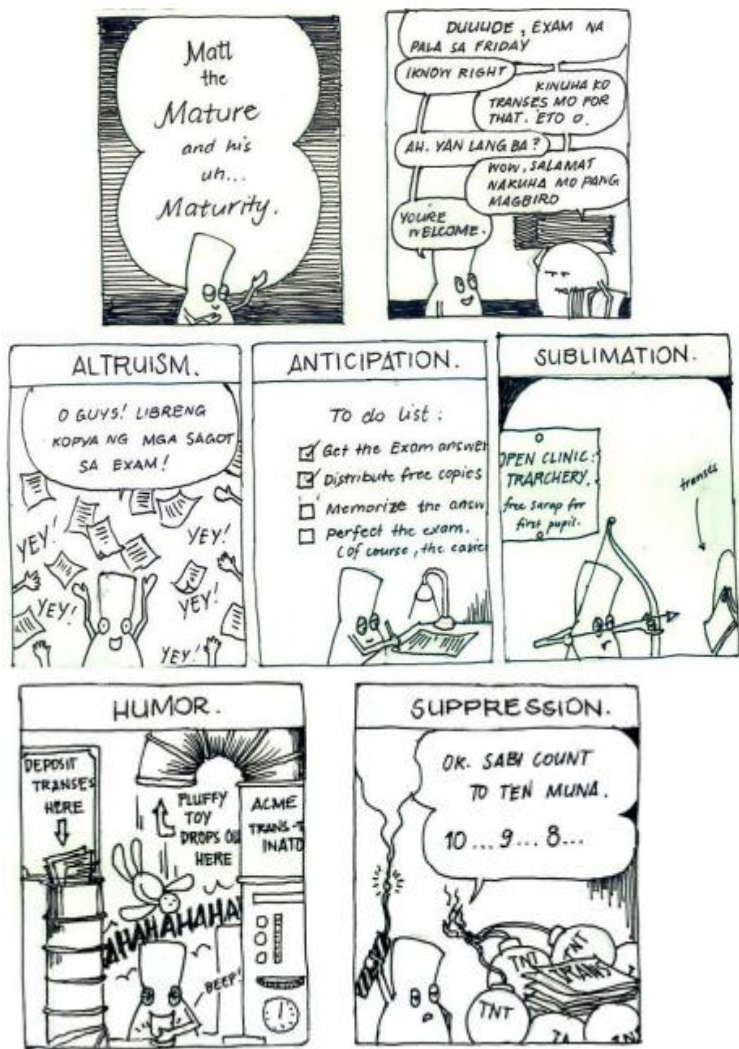 Matt
the
Mature
and his
uh...
Maturity.
DUUUDE, EXAM NA
PALA SA FRIDAY
I KNOW RIGHT
KINUHA KO
TRANSES MO FOR
THAT. ETO O.
AH. YAN LANG BA?
WOW, SALAMAT
NAKUHA MO PANG
MAGBIRO
YOU'RE
WELCOME.
ALTRUISM.
O GUYS! LIBRENG
KOPYA NG MGA SAGOT
SA EXAM!
YEY!
YEY!
YEY!
YEY!
YEY!
ANTICIPATION.
To do list:
Get the Exam answer
Distribute free copies
Memorize the answ
Perfect the exam.
(Of course, the easie
SUBLIMATION.
OPEN CLINIC:
TRARCHERY.
free sarap for
first pupil.
transes
HUMOR.
DEPOSIT
TRANSES
HERE
FLUFFY
TOY
DROPS OU
HERE
ACME
TRANS-T
INATO
AHAHAHAHA
BEEP!
SUPPRESSION.
OK. SABI COUNT
TO TEN MUNA.
10...9...8...
TNT
TNT
TNT
TRANS
TNT